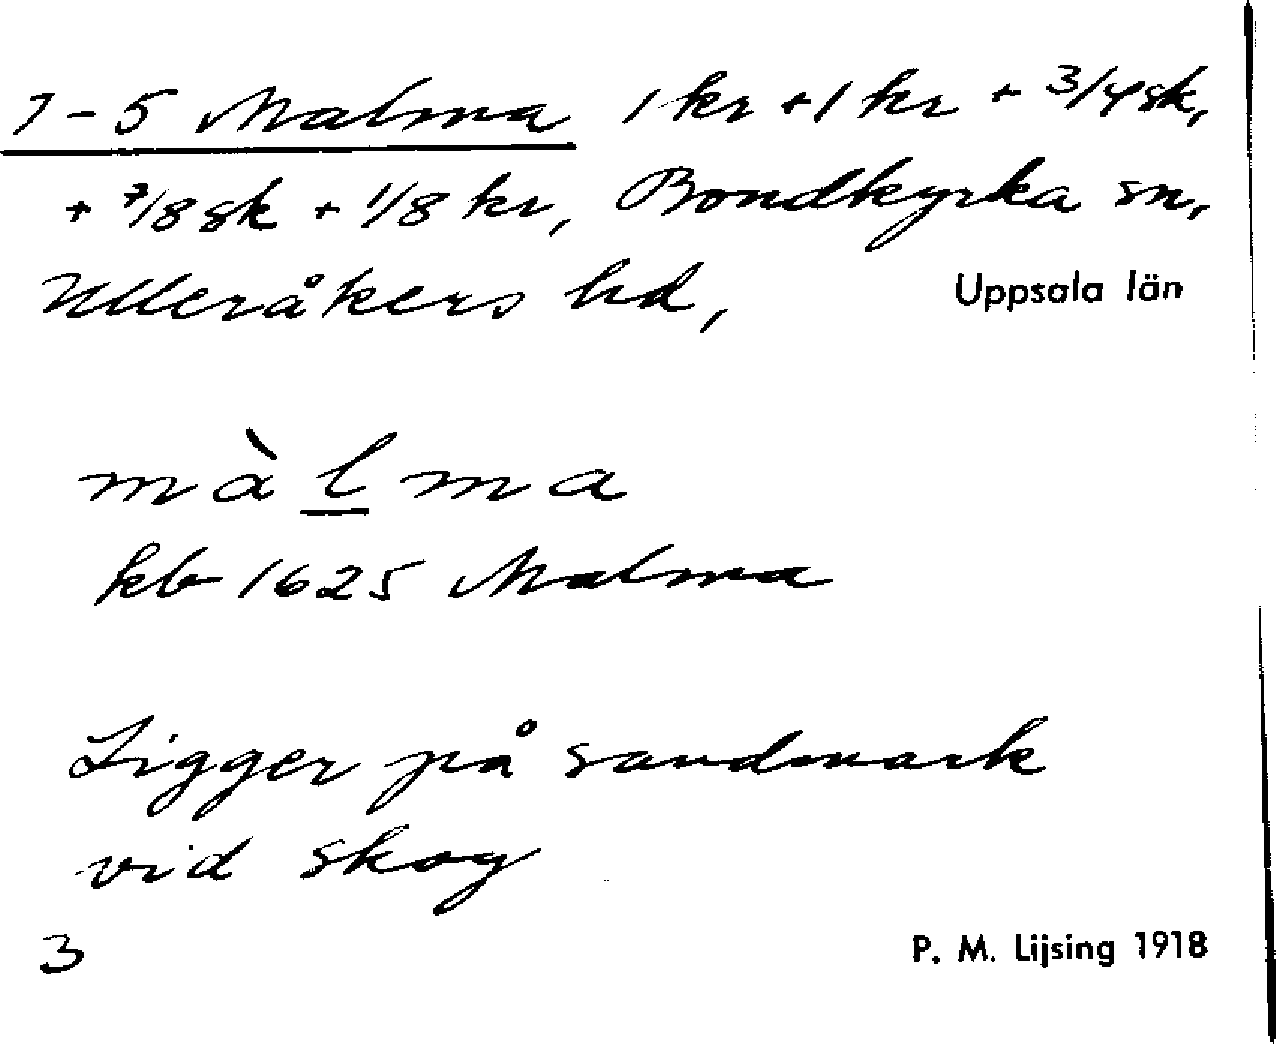 1-5 Malma 1 kr + 1 kr + 3/4 sk,
+ 7/8 sk + 1/8 kr, Bondkyrka sn,
Ulleråkers hd, Uppsala län
màl̲ma
kb 1625 Malma
Ligger på sandmark
vid skog
3 P. M. Lijsing 1918